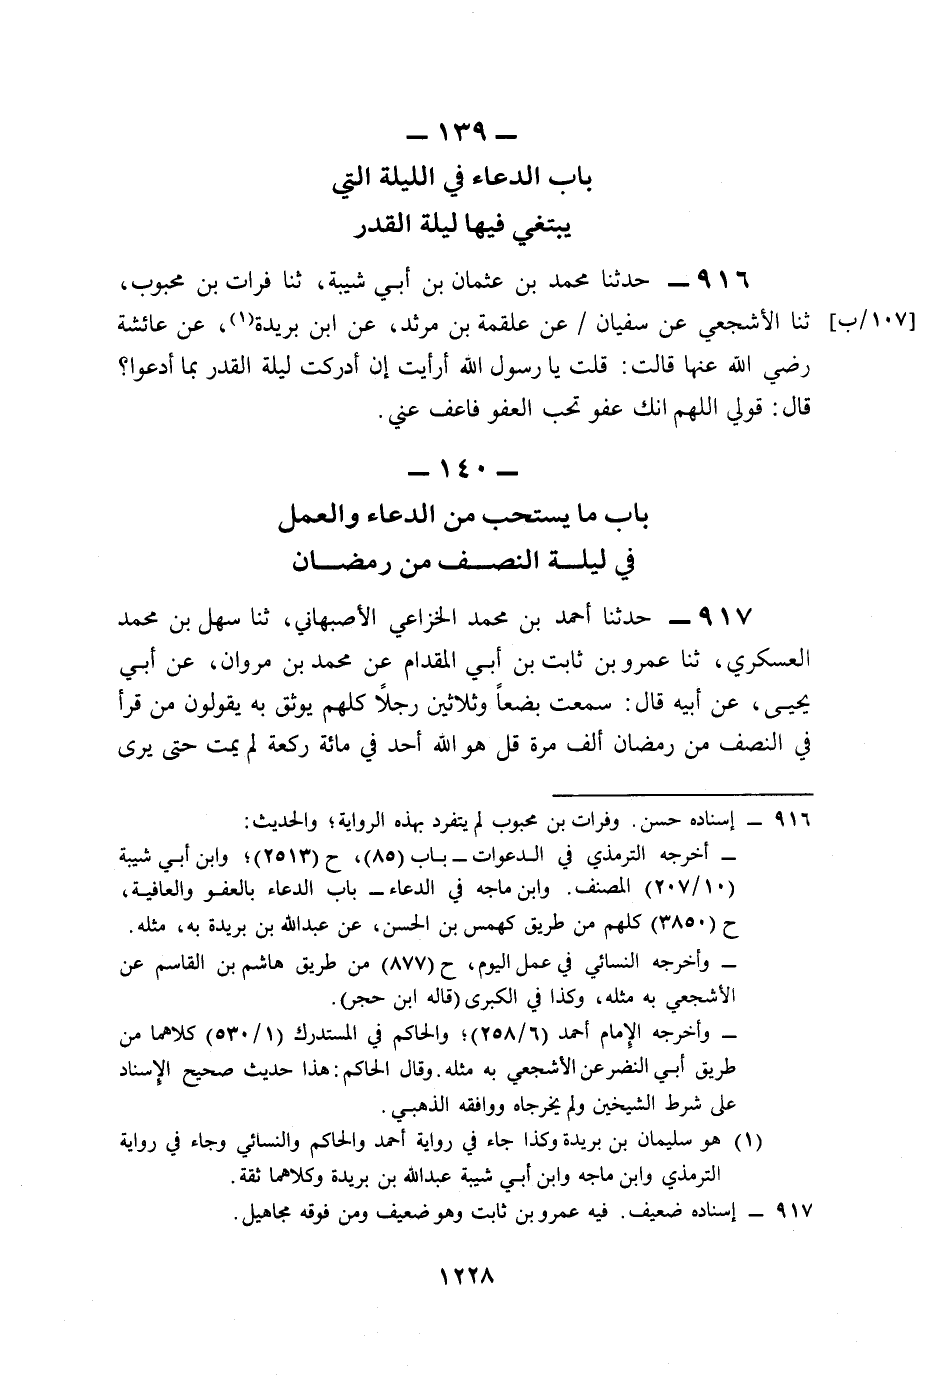 ــ ١٣٩ ــ
باب الدعاء في الليلة التي
يبتغي فيها ليلة القدر
٩١٦ ــ حدثنا محمد بن عثمان بن أبي شيبة، ثنا فرات بن محبوب،
[١٠٧/ب] ثنا الأشجعي عن سفيان / عن علقمة بن مرثد، عن ابن بريدة(١)، عن عائشة
رضي الله عنها قالت: قلت يا رسول الله أرأيت إن أدركت ليلة القدر بما أدعوا؟
قال: قولي اللهم انك عفو تحب العفو فاعف عني.
ــ ١٤٠ ــ
باب ما يستحب من الدعاء والعمل
في ليلــة النصــف من رمضــان
٩١٧ ــ حدثنا أحمد بن محمد الخزاعي الأصبهاني، ثنا سهل بن محمد
العسكري، ثنا عمرو بن ثابت بن أبي المقدام عن محمد بن مروان، عن أبي
يحيى، عن أبيه قال: سمعت بضعاً وثلاثين رجلاً كلهم يوثق به يقولون من قرأ
في النصف من رمضان ألف مرة قل هو الله أحد في مائة ركعة لم يمت حتى يرى
٩١٦ ــ إسناده حسن. وفرات بن محبوب لم يتفرد بهذه الرواية؛ والحديث:
ــ أخرجه الترمذي في الدعوات ــ باب (٨٥)، ح (٢٥١٣)؛ وابن أبي شيبة
(٢٠٧/١٠) المصنف. وابن ماجه في الدعاء ــ باب الدعاء بالعفو والعافية،
ح (٣٨٥٠) كلهم من طريق كهمس بن الحسن، عن عبدالله بن بريدة به، مثله.
ــ وأخرجه النسائي في عمل اليوم، ح (٨٧٧) من طريق هاشم بن القاسم عن
الأشجعي به مثله، وكذا في الكبرى (قاله ابن حجر).
ــ وأخرجه الإمام أحمد (٢٥٨/٦)؛ والحاكم في المستدرك (٥٣٠/١) كلاهما من
طريق أبي النضر عن الأشجعي به مثله. وقال الحاكم: هذا حديث صحيح الإسناد
على شرط الشيخين ولم يخرجاه ووافقه الذهبي.
(١) هو سليمان بن بريدة وكذا جاء في رواية أحمد والحاكم والنسائي وجاء في رواية
الترمذي وابن ماجه وابن أبي شيبة عبدالله بن بريدة وكلاهما ثقة.
٩١٧ ــ إسناده ضعيف. فيه عمرو بن ثابت وهو ضعيف ومن فوقه مجاهيل.
١٢٢٨